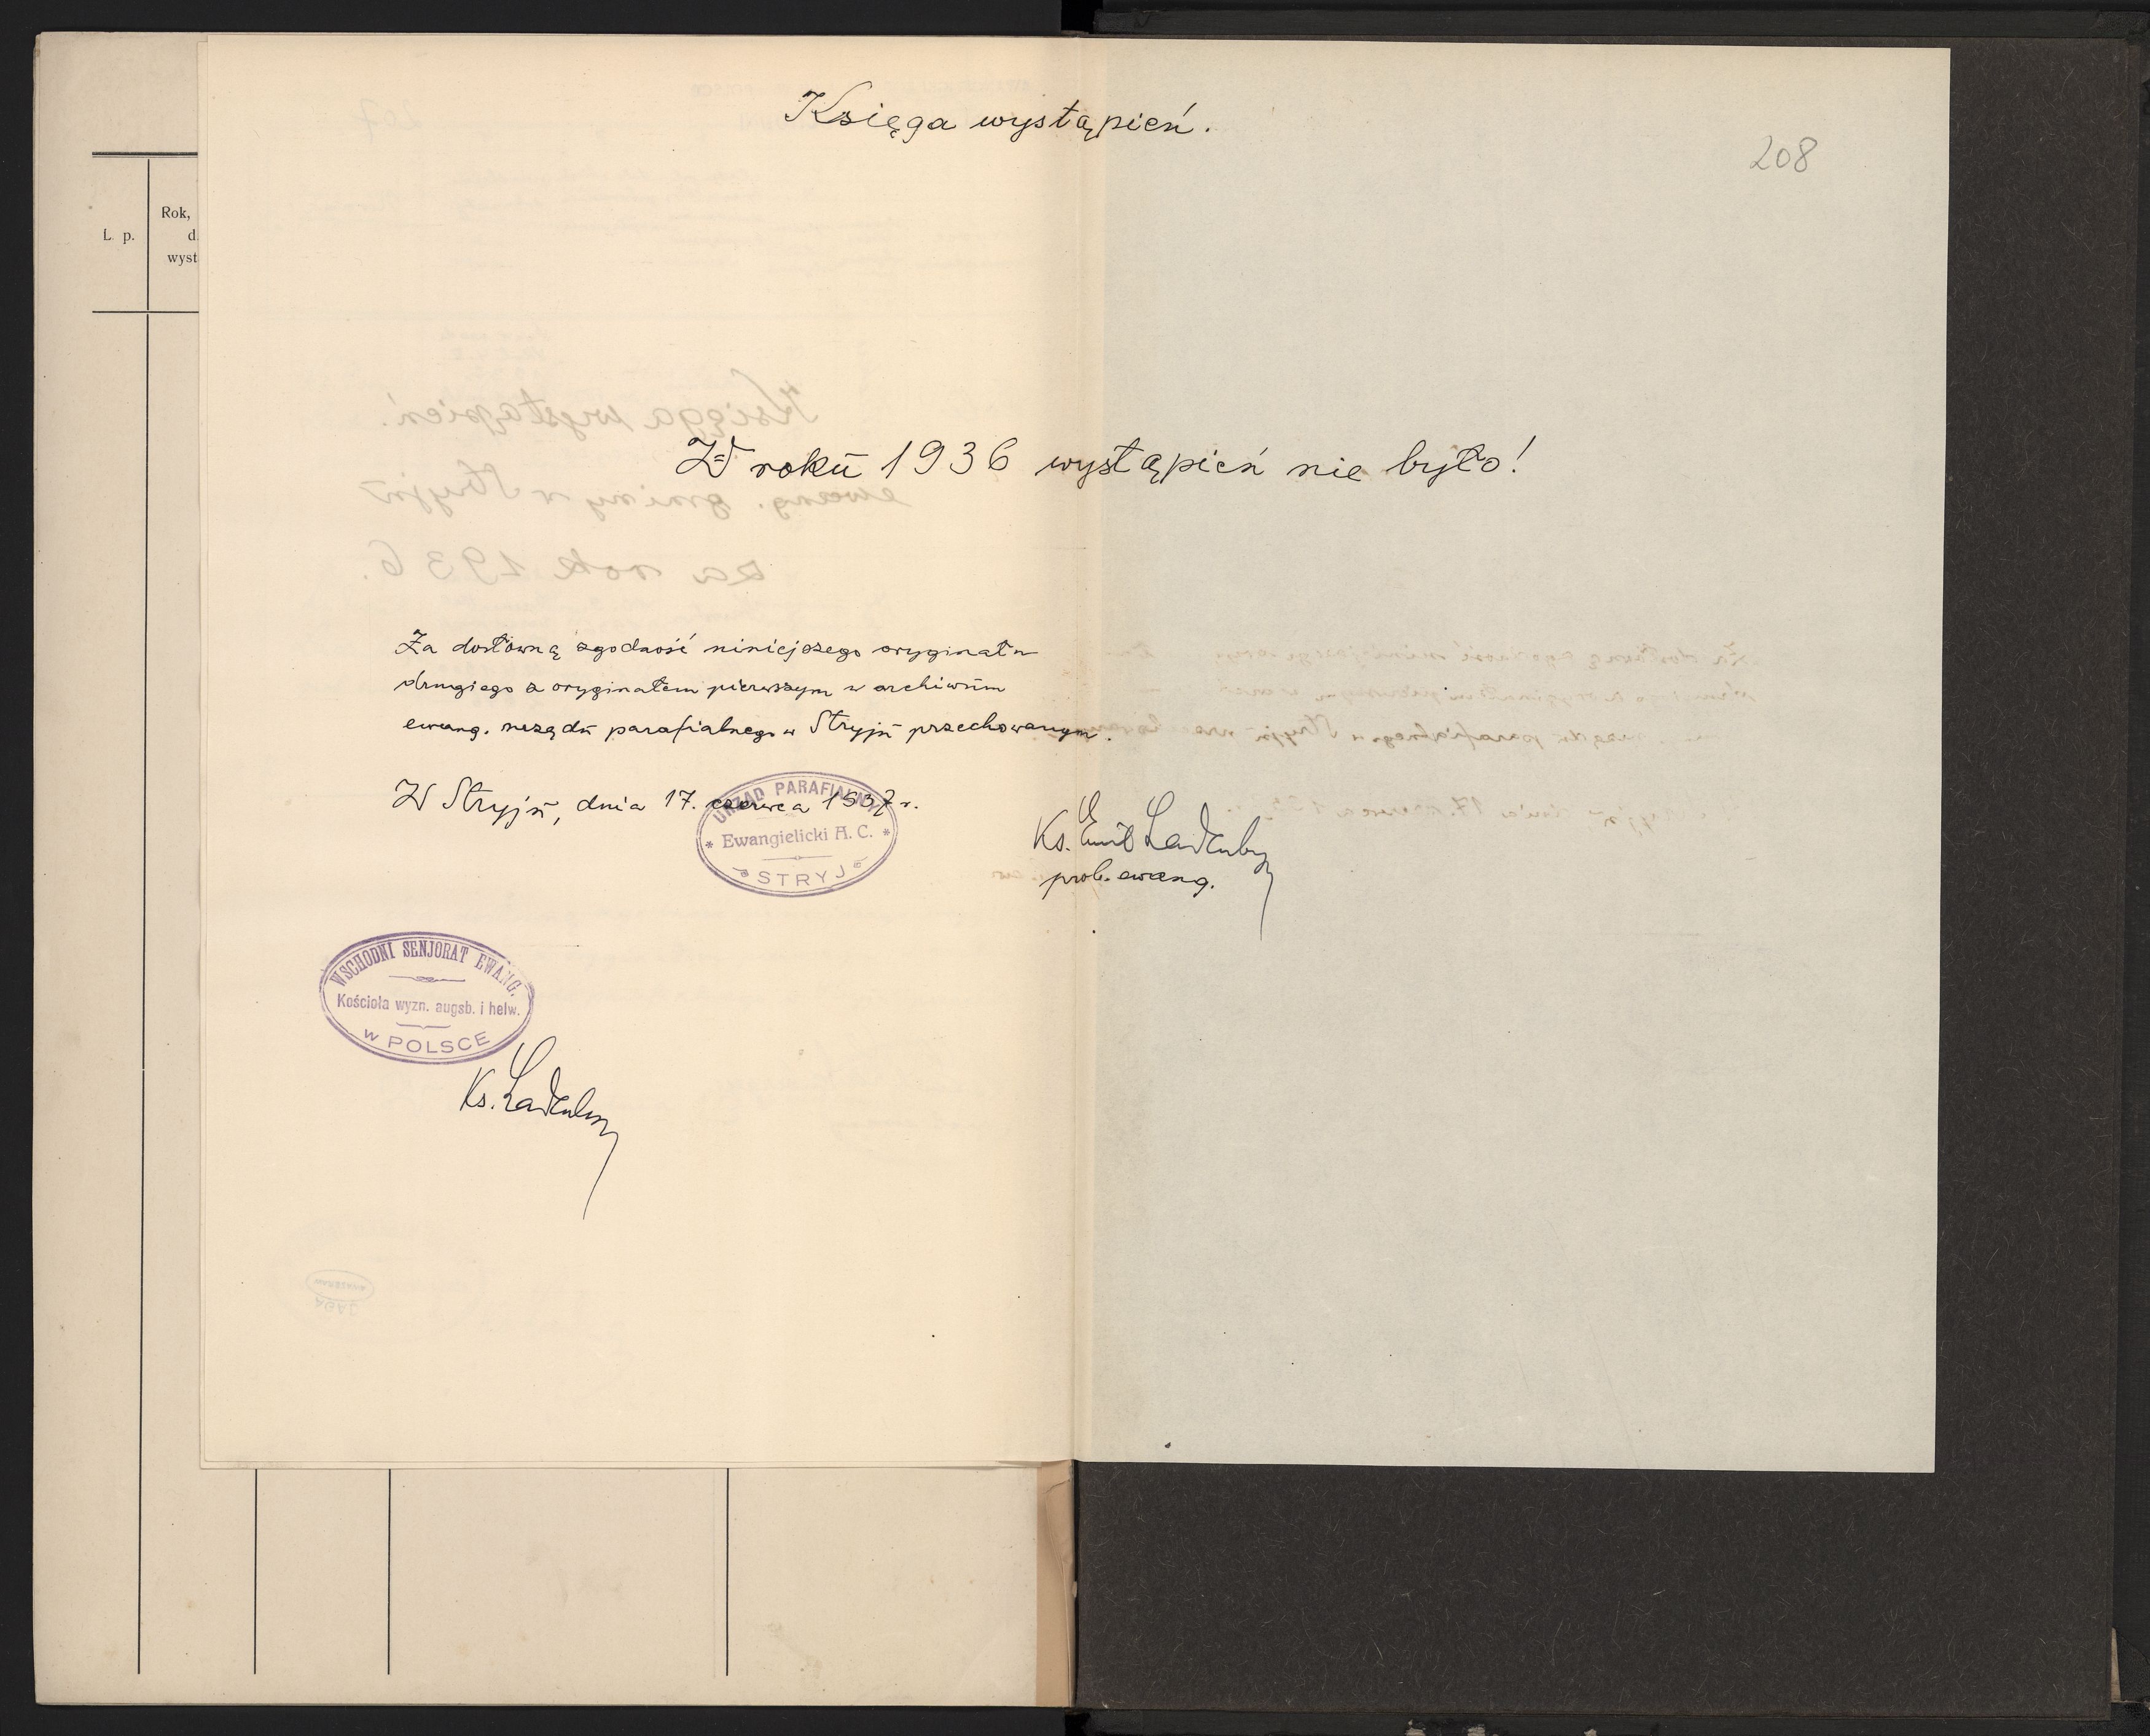 Księga wystąpień.
208
L. p.
Rok,
d.
wyst
W roku 1936 wystąpień nie było!
Za dosłowną zgodność niniejszego oryginału
drugiego z oryginałem pierwszym w archiwum
ewang. urzędu parafialnego w Stryju przechowanym.
W Stryju, dnia 17. czerwca 1937 r.
URZĄD PARAFIALNY
* Ewangielicki A. C. *
STRYJ
Ks. Emil Ladenberger
prob. ewang.
WSCHODNI SENJORAT EWANG.
Kościoła wyzn. augsb. i helw.
w POLSCE
Ks. Ladenberger
Księga wystąpień.
ewang. gminy w Stryju
za rok 1936.